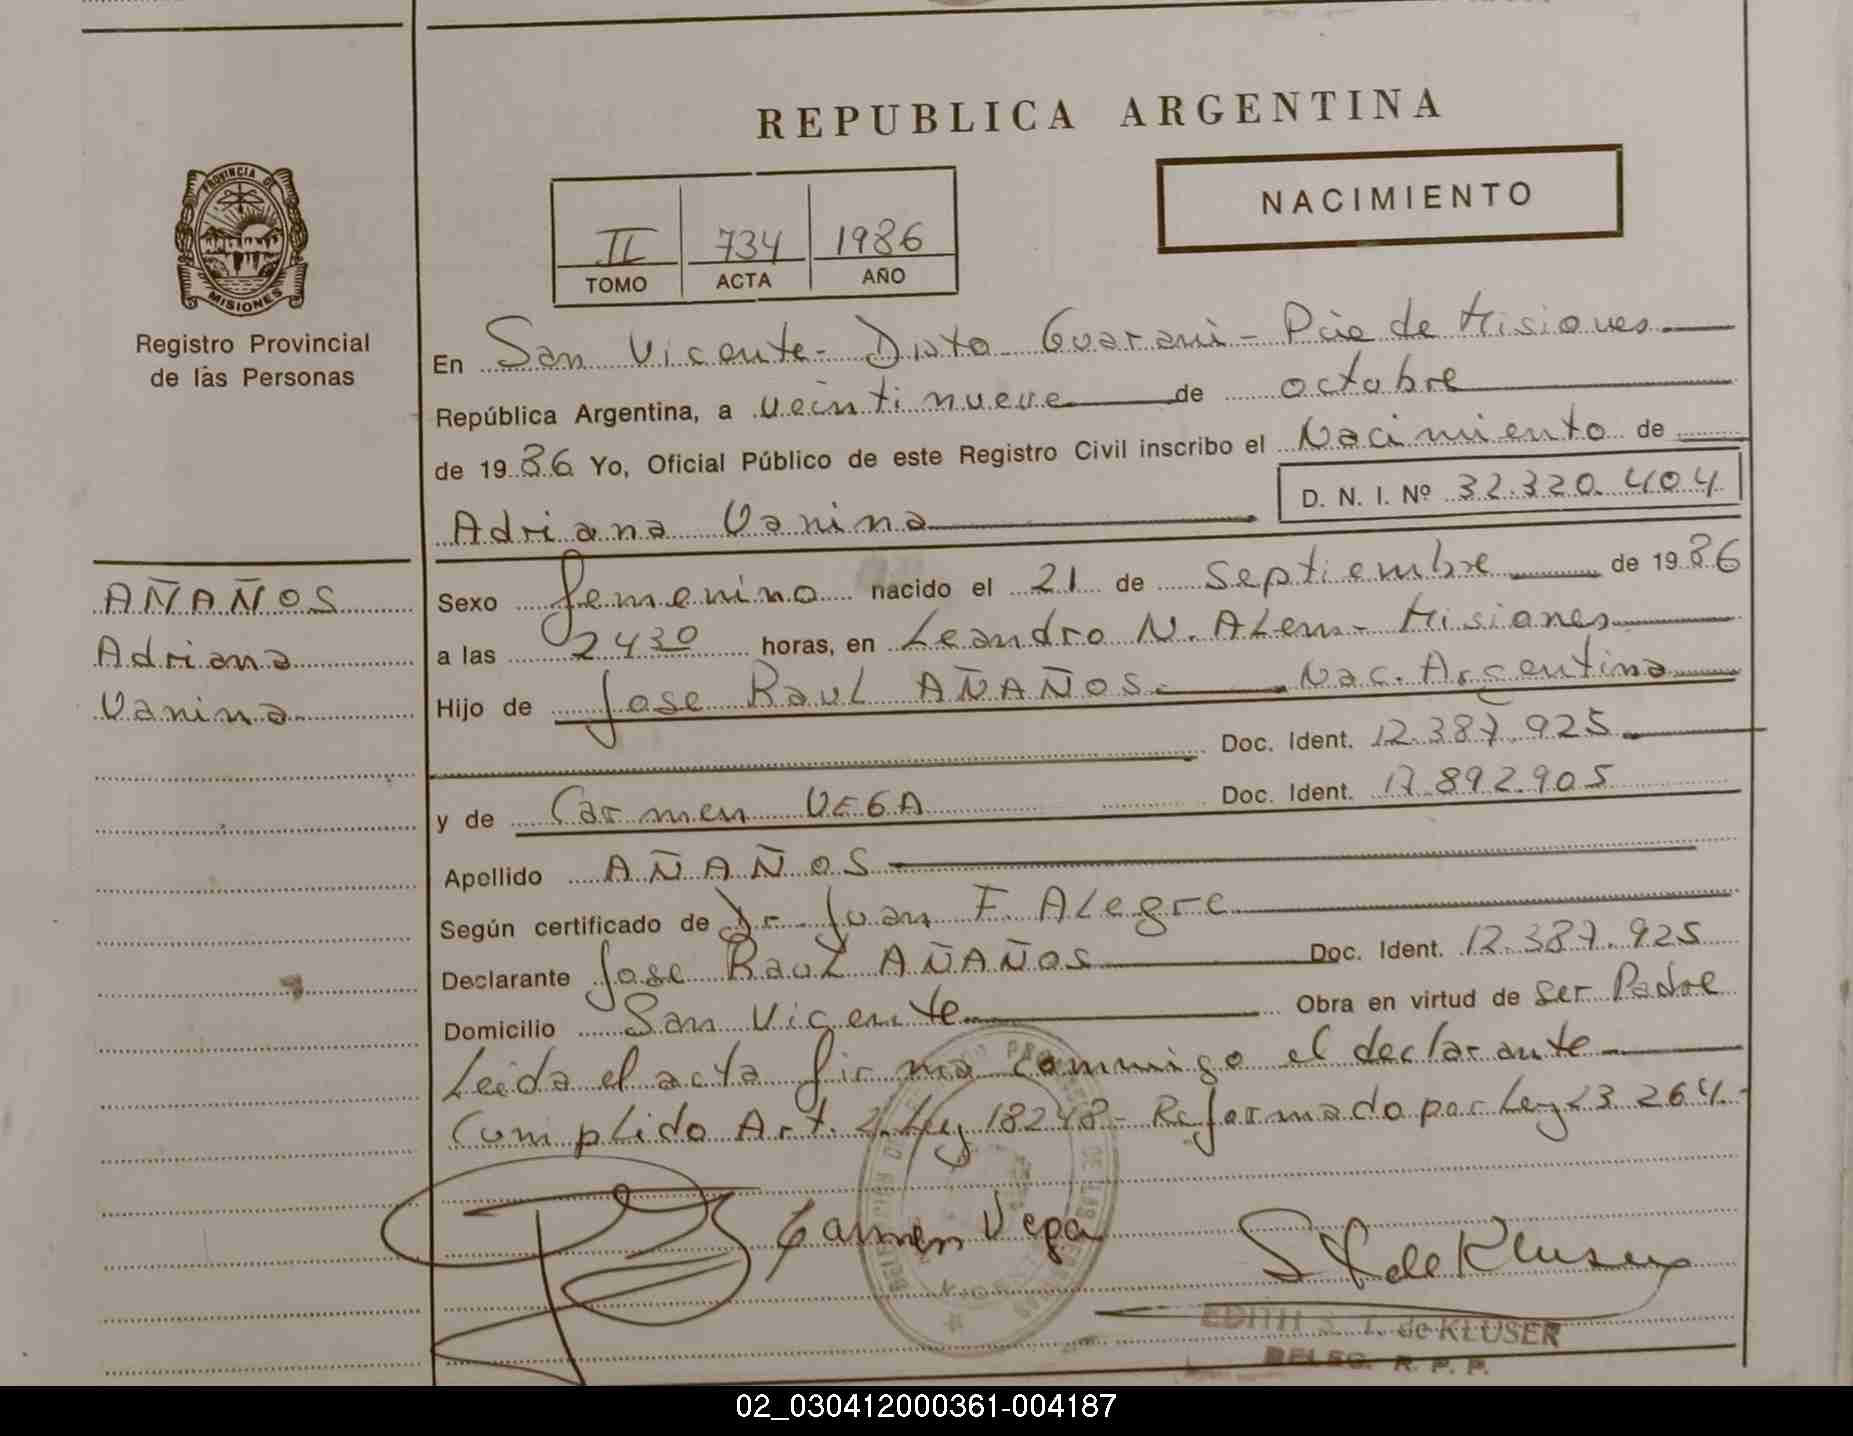 REPUBLICA ARGENTINA
NACIMIENTO
II 734 1986
TOMO ACTA AÑO
PROVINCIA DE
MISIONES
Registro Provincial
de las Personas
En San Vicente - Dpto Guarani - Pcia de Misiones
República Argentina, a veintinueve de octubre
de 1986 Yo, Oficial Público de este Registro Civil inscribo el Nacimiento de
D. N. I. Nº 32.320.404
Adriana Vanina
AÑAÑOS
Adriana
Vanina
Sexo femenino nacido el 21 de Septiembre de 1986
a las 2430 horas, en Leandro N. ALem - Misiones
Hijo de Jose Raul AÑAÑOS. Nac. Argentina
Doc. Ident. 12.387.925
y de Carmen VEGA Doc. Ident. 17.892.905
Apellido AÑAÑOS
Según certificado de Dr. Juan F. ALegre
Declarante Jose Raul AÑAÑOS Doc. Ident. 12.387.925
Domicilio San Vicente Obra en virtud de Ser Padre
Leida el acta firma conmigo el declarante
Cumplido Art. 2 Ley 18248 - Reformado por Ley 23.264.-
Carmen Vega
S T de Kluser
EDITH S. T. de KLUSER
DELEG. R. P. P.
02_030412000361-004187